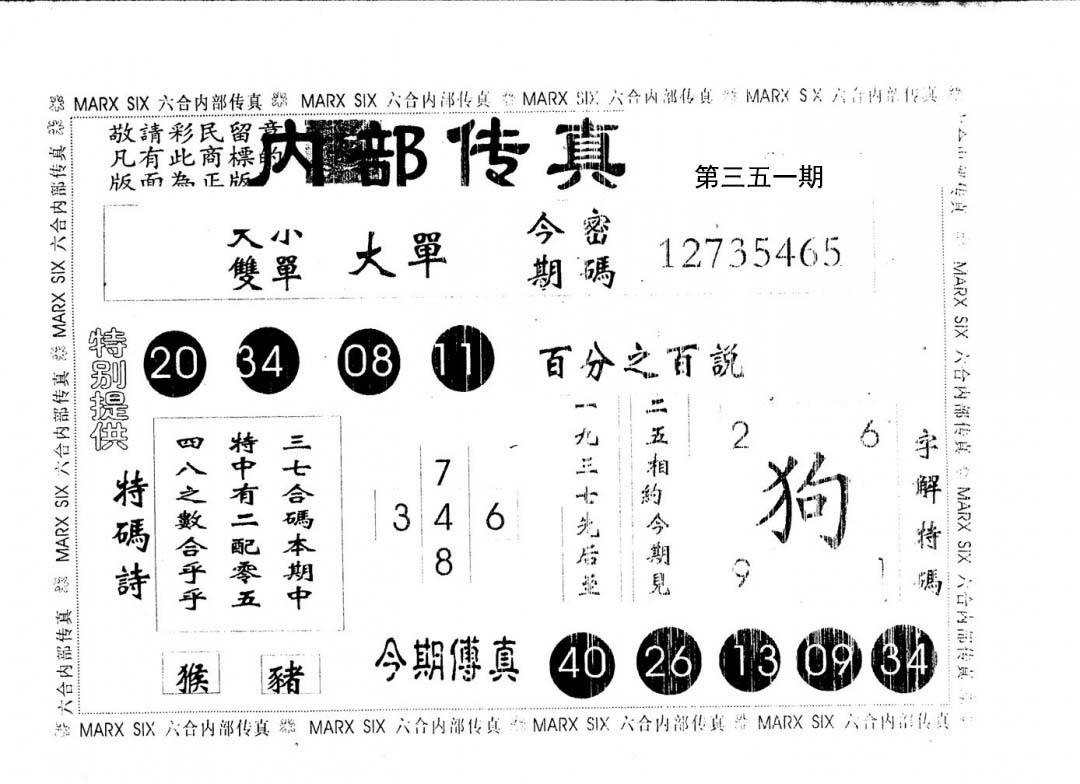 MARX SIX 六合内部传真 MARX SIX 六合内部传真 MARX SIX 六合内部传真 MARX SIX 六合内部传真
敬請彩民留意
凡有此商標的
版面為正版
内部传真
第三五一期
大小
雙單
大單
今期
密碼
12735465
特别提供
20 34 08 11
百分之百説
特碼詩
三七合碼本期中
特中有二配零五
四八之數合乎乎
7
3 4 6
8
二五相約今期見
一九三七先后並
2 6
狗
9 1
字解特碼
猴 豬
今期傳真
40 26 13 09 34
MARX SIX 六合内部传真 MARX SIX 六合内部传真 MARX SIX 六合内部传真 MARX SIX 六合内部传真
MARX SIX 六合内部传真 MARX SIX 六合内部传真
MARX SIX 六合内部传真 MARX SIX 六合内部传真